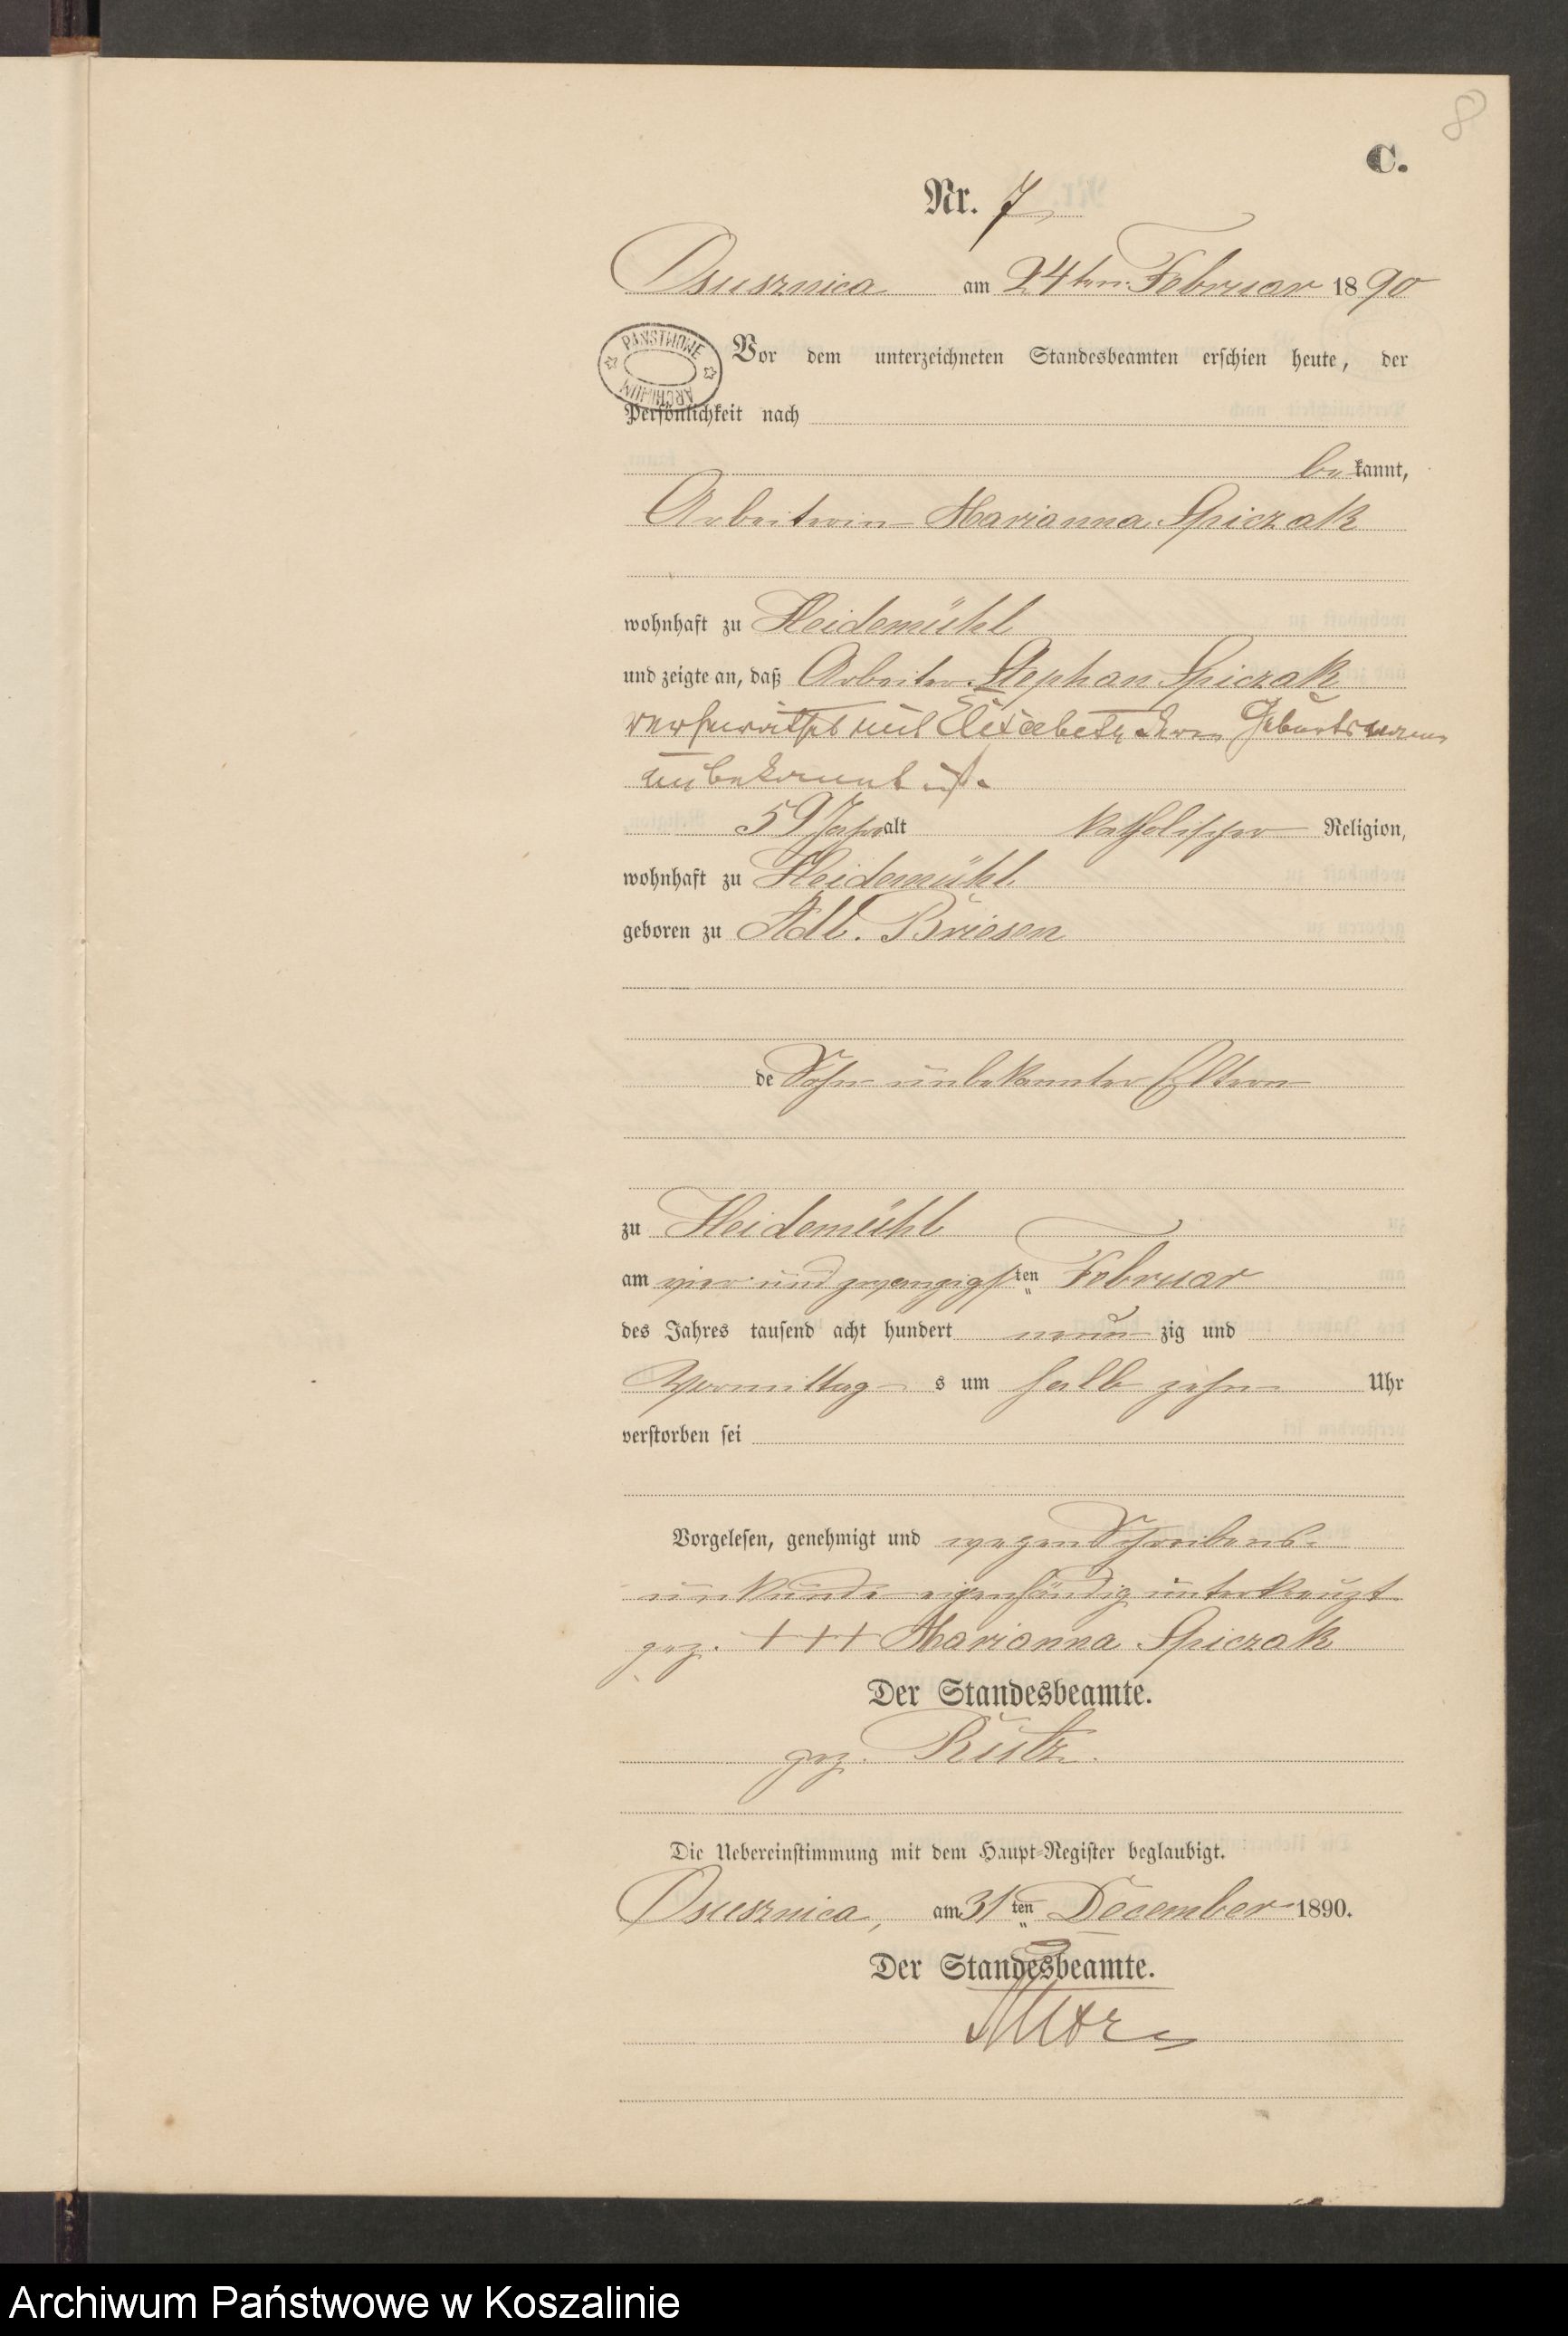 8
C.
Nr. 7
Osusznica am 24ten Februar 1890
PAŃSTWOWE ARCHIWUM
Vor dem unterzeichneten Standesbeamten erschien heute, der
Persönlichkeit nach
be kannt,
Arbeiterin Marianna Spiczak
wohnhaft zu Heidemühl
und zeigte an, daß Arbeiter Stephan Spiczak
verheirathet mit Elisabeth deren Geburtsname
unbekannt ist.
59 Jahre alt katholischer Religion,
wohnhaft zu Heidemühl
geboren zu Adl. Briesen
de Sohn unbekannter Eltern
zu Heidemühl
am vier und zwanzigsten Februar
des Jahres tausend acht hundert neun zig und
Vormittag s um halb zehn Uhr
verstorben sei
Vorgelesen, genehmigt und wegen Schreibens-
unkunde eigenhändig unterkreuzt
gez. +++ Marianna Spiczak
Der Standesbeamte.
gez. Rutz.
Die Uebereinstimmung mit dem Haupt-Register beglaubigt.
Osusznica, am 31ten December 1890.
Der Standesbeamte.
Archiwum Państwowe w Koszalinie